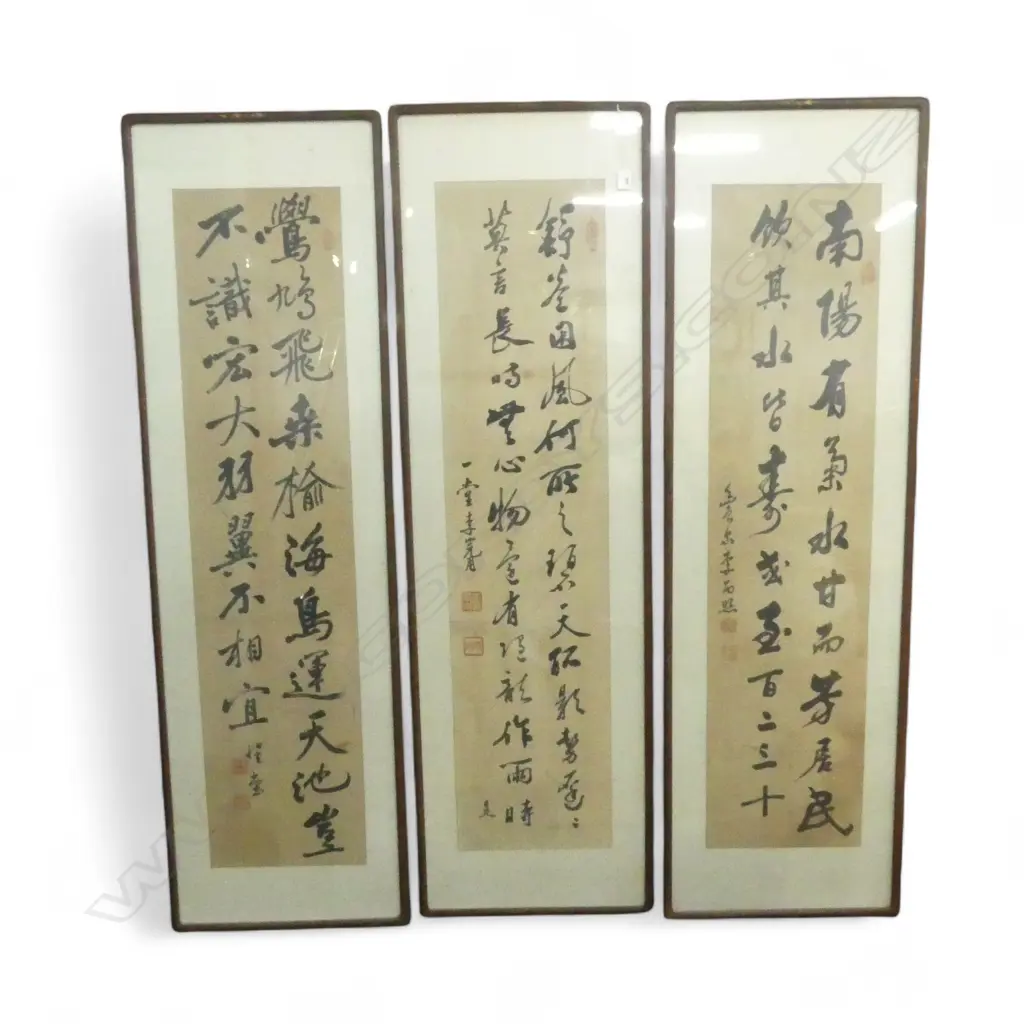 南陽有菊水甘而芳居民
飲其水皆壽或至百二三十
舒卷因風何所之碧天孤影勢遲〻
莫言長時無心物還有隨龍作雨時 是
一堂李
鷽鳩飛桑榆海鳥運天池豈
不識宏大羽翼不相宜
堂